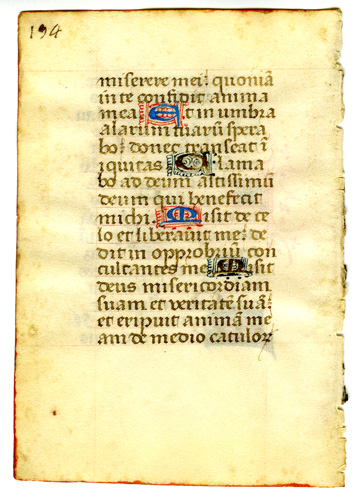 194
miserere mei: quoniā
in te confidit anima
mea. Et in umbra
alarum tuarū spera
bo: donec transeat ī
iquitas. Clama
bo ad deum altissimū
deum qui benefecit
michi. Misit de ce
lo et liberavit me: de
dit in opprobriū con
cultantes me. Misit
deus misericordiam
suam et veritatē suā:
et eripuit animam me
am de medio catuloꝝ